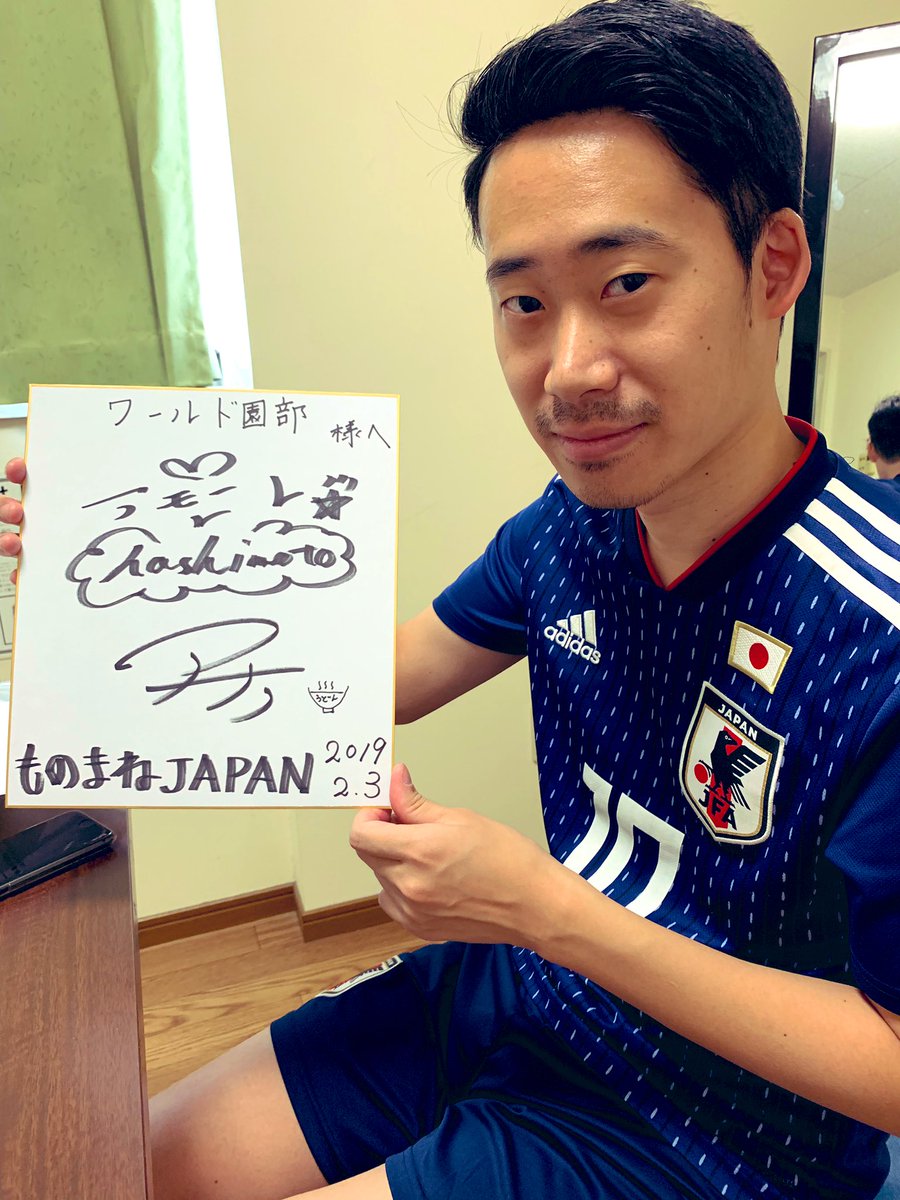 ワールド園部
様へ
アモーレ
hashimoto
うどん
ものまねJAPAN
2019
2.3
adidas
JAPAN
JFA
10